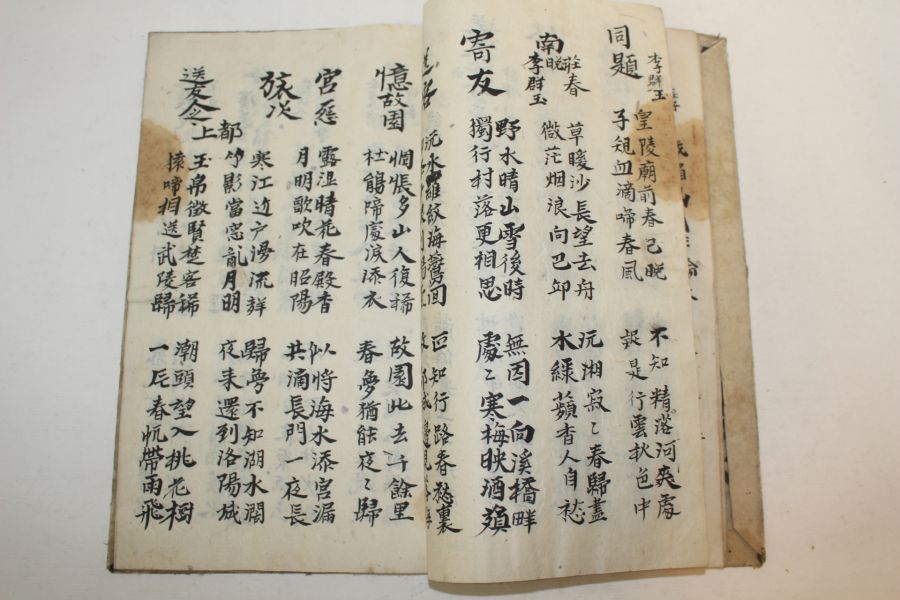 同題
李群玉
皇陵廟前春已晚
子規血滴啼春風
不知精落河爽處
疑是行雲秋色中
南莊春晚
李群玉
草暖沙長望去舟
微茫烟浪向巴邱
沅湘寂〻春歸盡
水綠蘋香人自愁
寄友
野水晴山雪後時
獨行村落更相思
無因一向溪橋畔
處〻寒梅映酒旗
沅水羅紋海鷰回
知行路春愁裏
憶故園
惆悵多山人復稀
杜鵑啼處淚添衣
故園此去千餘里
春夢猶能夜〻歸
宮怨
露濕晴花春殿香
月明歌吹在昭陽
似將海水添宮漏
共滴長門一夜長
旅次
寒江近戶漫流聲
竹影當窓亂月明
歸夢不知湖水闊
夜來還到洛陽城
送友人上都
玉帛徵賢楚客稀
猿啼相送武陵歸
潮頭望入桃花樹
一片春帆帶雨飛